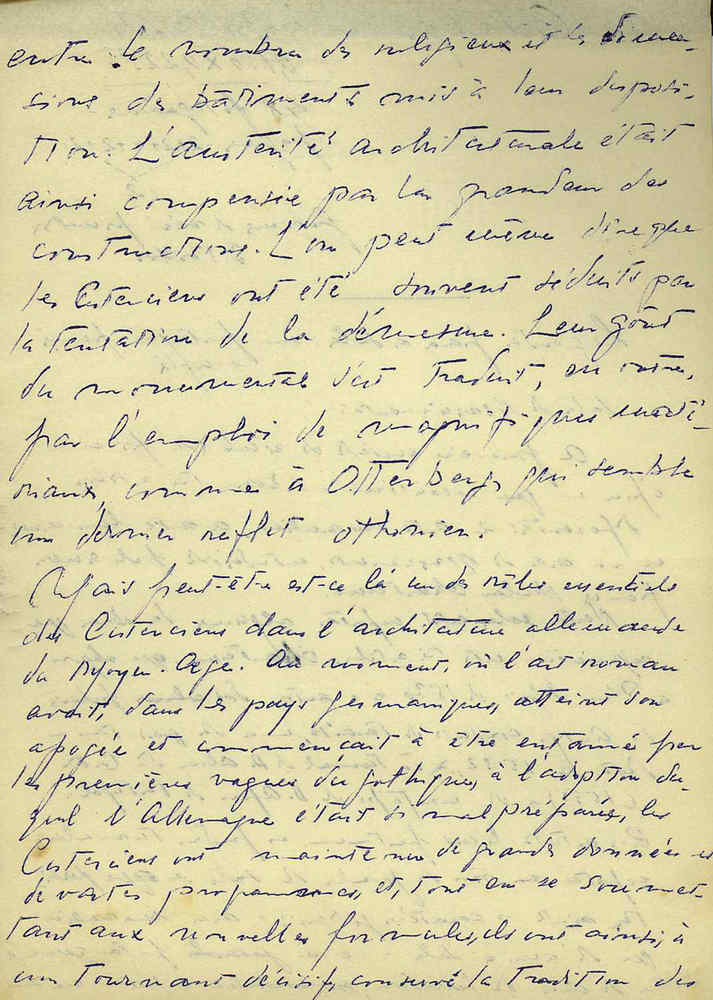 entre le nombre des religieux et les dimen-
sions des bâtiments mis à leur disposi-
tion. L'austérité architecturale était
ainsi compensée par la grandeur des
constructions. L'on peut même dire que
les Cisterciens ont été souvent séduits par
la tentation de la démesure. Leur goût
du monumental s'est traduit, en outre,
par l'emploi de magnifiques maté-
riaux, comme à Otterberg, qui semble
un dernier reflet othonien.
Mais peut-être est-ce là un des rôles essentiels
des Cisterciens dans l'architecture allemande
du Moyen-Age. Au moment, où l'art roman
avait, dans les pays germaniques, atteint son
apogée et commençait à être entamé par
les premières vagues du gothique, à l'adoption du-
quel l'Allemagne était si mal préparée, les
Cisterciens ont maintenu de grandes données et
de vastes programmes, et, tout en se soumet-
tant aux nouvelles formules, ils ont ainsi, à
un tournant décisif, conservé la tradition des